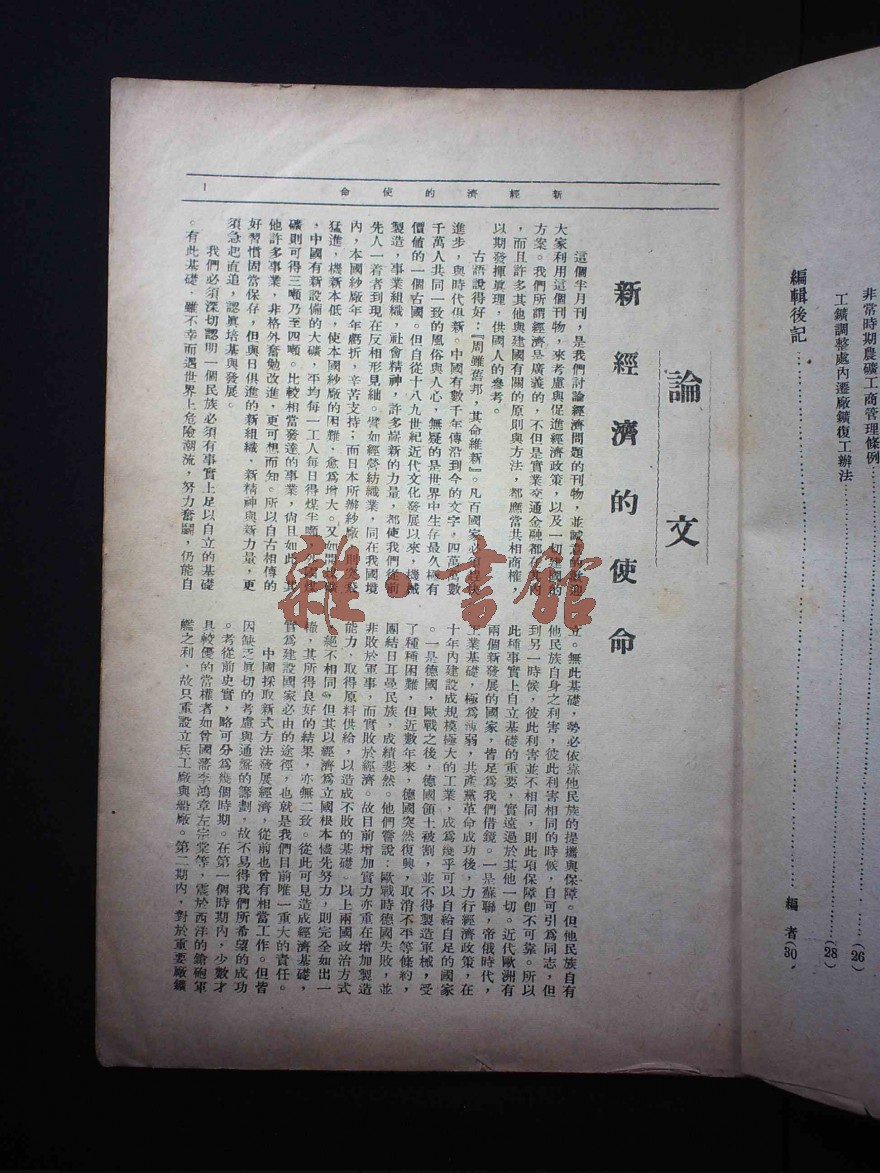 非常時期農礦工商管理條例……26)
工鑛調整處內遷廠鑛復工辦法……(28)
編輯後記……編 者(30)
新經濟的使命
1
論文
新經濟的使命
這個半月刊,是我們討論經濟問題的刊物,並誠意的歡迎
大家利用這個刊物,來考慮與促進經濟政策,以及一切建國的
方案。我們所謂經濟是廣義的,不但是實業交通金融都在其內
,而且許多其他與建國有關的原則與方法,都應當共相商榷,
以期發揮眞理,供國人的參考。
古語說得好:『周雖舊邦,其命維新』。凡百國家必須程快
進步,與時代俱新。中國有數千年傳沿到今的文字,四萬萬數
千萬人共同一致的風俗與人心,無疑的是世界中生存最久極有
價値的一個古國。但自從十八九世紀近代文化發展以來,機械
製造,事業組織,社會精神,許多嶄新的力量,都使我們從前
先人一着者到現在反相形見絀。譬如經營紡織業,同在我國境
內,本國紗廠年年虧折,辛苦支持;而日本所辦紗廠,則突飛
猛進,機新本低,使本國紗廠的困難,愈爲增大。又如開或鑛
,中國有新設備的大礦,平均每一工人每日得煤半噸,外國煤
礦則可得三噸乃至四噸。比較相當發達的事業,尙且如此,其
他許多事業,非格外奮勉改進,更可想而知。所以自古相傳的
好習慣固當保存,但與日俱進的新組織,新精神與新力量,更
須急起直追,認眞培基與發展。
我們必須深切認明一個民族必須有事實上足以自立的基礎
。有此基礎,雖不幸而遇世界上危險潮流,努力奮鬭,仍能自
立。無此基礎,勢必依靠他民族的提攜與保障。但他民族自有
他民族自身之利害,彼此利害相同的時候,自可引爲同志,但
到另一時候,彼此利害並不相同,則此項保障卽不可靠。所以
此種事實上自立基礎的重要,實遠過於其他一切。近代歐洲有
兩個新發展的國家,皆足爲我們借鏡。一是蘇聯,帝俄時代,
工業基礎,極爲薄弱,共產黨革命成功後,力行經濟政策,在
十年內建設成規模極大的工業,成爲幾乎可以自給自足的國家
。一是德國,歐戰之後,德國領土被割,並不得製造軍械,受
了種種困難,但近數年來,德國突然復興,取消不平等條約,
團結日耳曼民族,成績斐然。他們嘗說:歐戰時德國失敗,並
非敗於軍事,而實敗於經濟。故目前增加實力亦重在增加製造
能力,取得原料供給,以造成不敗的基礎。以上兩國政治方式
絕不相同,但其以經濟爲立國根本儘先努力,則完全如出一
轍,其所得良好的結果,亦無二致。從此可見造成經濟基礎,
實爲建設國家必由的途徑,也就是我們目前唯一重大的責任。
中國採取新式方法發展經濟,從前也曾有相當工作。但皆
因缺乏眞切的考慮與通盤的籌劃,故不易得我們所希望的成功
。考從前史實,略可分爲幾個時期。在第一個時期內,少數才
具較優的當權者如曾國藩李鴻章左宗棠等,震於西洋的鎗砲軍
艦之利,故只重設立兵工廠與船廠。第二期內,對於重要廠鑛
雜·書館